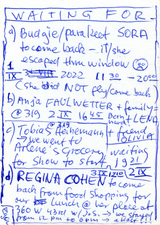 WAITING FOR
a) Budgie/parakeet SORA
to come back - it/she
escaped thru window
1 IX 2022 11 30 - 20
(she did NOT fly/come back)
b) Anja FAULWETTER + family
@ 319 2 IX 16 45 + LENA
c) Tobias Heinemann + friend
@ 319 OLIVIA
we went to
Arlene's Grocery waiting
for show to start 19 21
d) REGINA COHEN to come
back from food shopping for
our lunch @ her place at
360 W 43rd